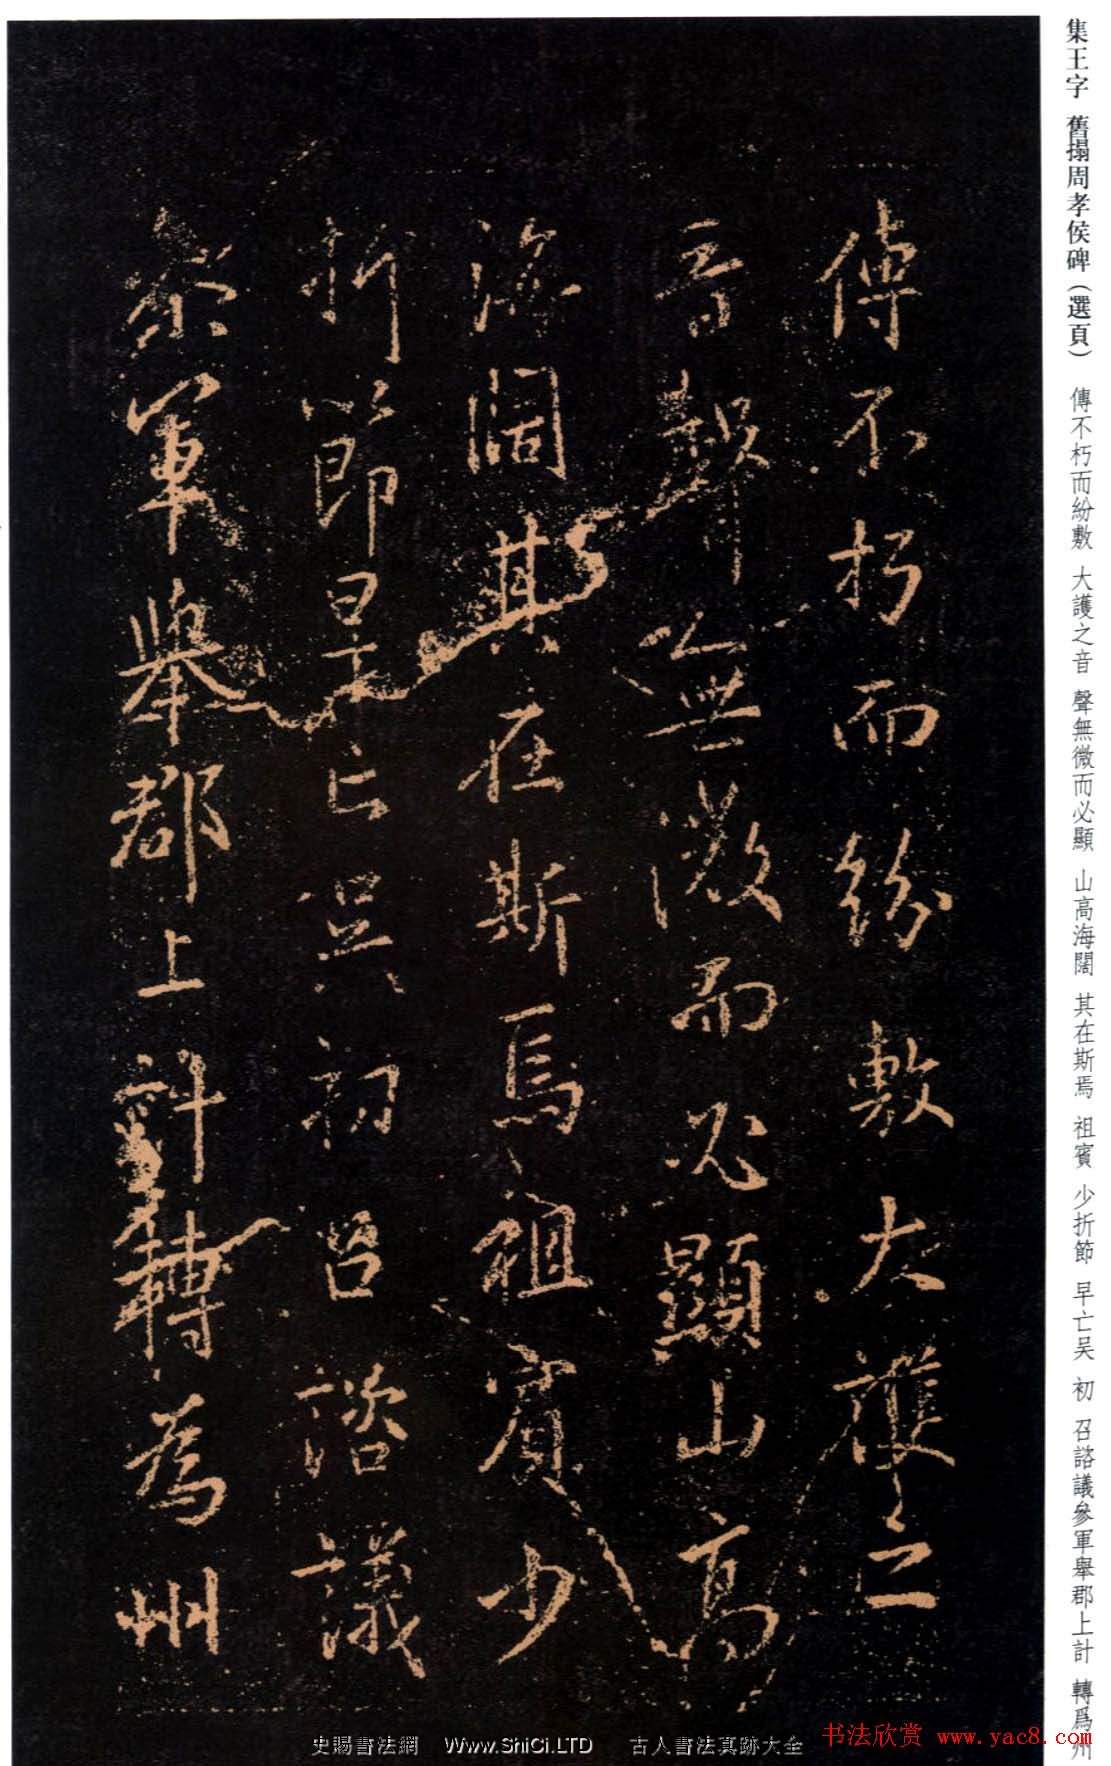 集王字 舊搨周孝侯碑（選頁） 傳不朽而紛敷 大護之音 聲無微而必顯 山高海闊 其在斯焉 祖賓 少折節 早亡吴 初 召諮議參軍舉郡上計 轉爲州
傳不朽而紛敷大護之
音聲無微而必顯山高
海闊其在斯焉祖賓少
折節早亡吴初召諮議
參軍舉郡上計轉為州
史賜書法網 Www.ShiCi.LTD 古人書法真跡大全
书法欣赏 www.yac8.com